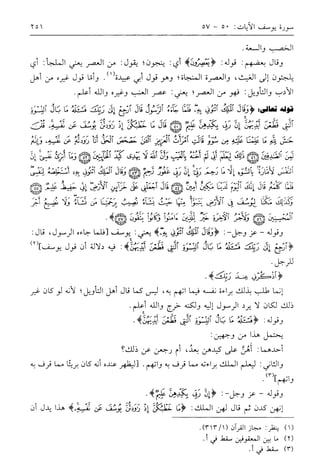 سورة يوسف الآيات: ٥٠ - ٥٧
٢٥١
الخصب والسعة.
وقال بعضهم: قوله: ﴿يَعْصِرُونَ﴾ أي: ينجون؛ يقول: من العصر يعني الملجأ: أي
يلجئون إلى الغيث، والعصرة المنجاة؛ وهو قول أبي عبيدة(١). وأمّا قول غيره من أهل
الأدب والتأويل: فهو من العصر؛ يعني: عصر العنب وغيره والله أعلم.
قوله تعالى: ﴿وَقَالَ ٱلْمَلِكُ ٱئْتُونِى بِهِۦ فَلَمَّا جَآءَهُ ٱلرَّسُولُ قَالَ ٱرْجِعْ إِلَىٰ رَبِّكَ فَسْـَٔلْهُ مَا بَالُ ٱلنِّسْوَةِ
ٱلَّـٰتِى قَطَّعْنَ أَيْدِيَهُنَّ إِنَّ رَبِّى بِكَيْدِهِنَّ عَلِيمٌ ۝ قَالَ مَا خَطْبُكُنَّ إِذْ رَٰوَدتُّنَّ يُوسُفَ عَن نَّفْسِهِۦ قُلْنَ
حَـٰشَ لِلَّهِ مَا عَلِمْنَا عَلَيْهِ مِن سُوٓءٍ قَالَتِ ٱمْرَأَتُ ٱلْعَزِيزِ ٱلْـَٔـٰنَ حَصْحَصَ ٱلْحَقُّ أَنَا۠ رَٰوَدتُّهُۥ عَن نَّفْسِهِۦ وَإِنَّهُۥ
لَمِنَ ٱلصَّـٰدِقِينَ ۝ ذَٰلِكَ لِيَعْلَمَ أَنِّى لَمْ أَخُنْهُ بِٱلْغَيْبِ وَأَنَّ ٱللَّهَ لَا يَهْدِى كَيْدَ ٱلْخَآئِنِينَ ۝ وَمَآ أُبَرِّئُ نَفْسِىٓ إِنَّ
ٱلنَّفْسَ لَأَمَّارَةٌۢ بِٱلسُّوٓءِ إِلَّا مَا رَحِمَ رَبِّىٓ إِنَّ رَبِّى غَفُورٌ رَّحِيمٌ ۝ وَقَالَ ٱلْمَلِكُ ٱئْتُونِى بِهِۦٓ أَسْتَخْلِصْهُ لِنَفْسِى
فَلَمَّا كَلَّمَهُۥ قَالَ إِنَّكَ ٱلْيَوْمَ لَدَيْنَا مَكِينٌ أَمِينٌ ۝ قَالَ ٱجْعَلْنِى عَلَىٰ خَزَآئِنِ ٱلْأَرْضِ إِنِّى حَفِيظٌ عَلِيمٌ ۝
وَكَذَٰلِكَ مَكَّنَّا لِيُوسُفَ فِى ٱلْأَرْضِ يَتَبَوَّأُ مِنْهَا حَيْثُ يَشَآءُ نُصِيبُ بِرَحْمَتِنَا مَن نَّشَآءُ وَلَا نُضِيعُ أَجْرَ
ٱلْمُحْسِنِينَ ۝ وَلَأَجْرُ ٱلْـَٔاخِرَةِ خَيْرٌ لِّلَّذِينَ ءَامَنُوا۟ وَكَانُوا۟ يَتَّقُونَ ۝﴾.
وقوله - عز وجل-: ﴿وَقَالَ ٱلْمَلِكُ ٱئْتُونِى بِهِۦ﴾ يعني: يوسف ﴿فلما جاءه الرسول، قال:
﴿ٱرْجِعْ إِلَىٰ رَبِّكَ فَسْـَٔلْهُ مَا بَالُ ٱلنِّسْوَةِ ٱلَّـٰتِى قَطَّعْنَ أَيْدِيَهُنَّ﴾: فيه دلالة أن قول يوسف](٢)
للرجل.
﴿ٱذْكُرْنِى عِندَ رَبِّكَ﴾.
إنما طلب بذلك براءة نفسه فيما اتهم به، ليس كما قال أهل التأويل؛ لأنه لو كان غير
ذلك لكان لا يرد الرسول إليه ولكنه خرج والله أعلم.
وقوله: ﴿مَا بَالُ ٱلنِّسْوَةِ ٱلَّـٰتِى قَطَّعْنَ أَيْدِيَهُنَّ﴾.
يحتمل هذا من وجهين:
أحدهما: أَهُنَّ على كيدهن بعدُ، أم رجعن عن ذلك؟
والثاني: ليعلم الملك براءته مما قرف به واتهم. [ليظهر عنده أنه كان بريئًا مما قرف به
واتهم](٣).
وقوله - عز وجل-: ﴿إِنَّ رَبِّى بِكَيْدِهِنَّ عَلِيمٌ﴾.
إنهن كدن ثم قال لهن الملك: ﴿مَا خَطْبُكُنَّ إِذْ رَٰوَدتُّنَّ يُوسُفَ عَن نَّفْسِهِۦ﴾ هذا يدل أن
(١) ينظر: مجاز القرآن (٣١٣/١).
(٢) ما بين المعقوفين سقط في أ.
(٣) سقط في أ.